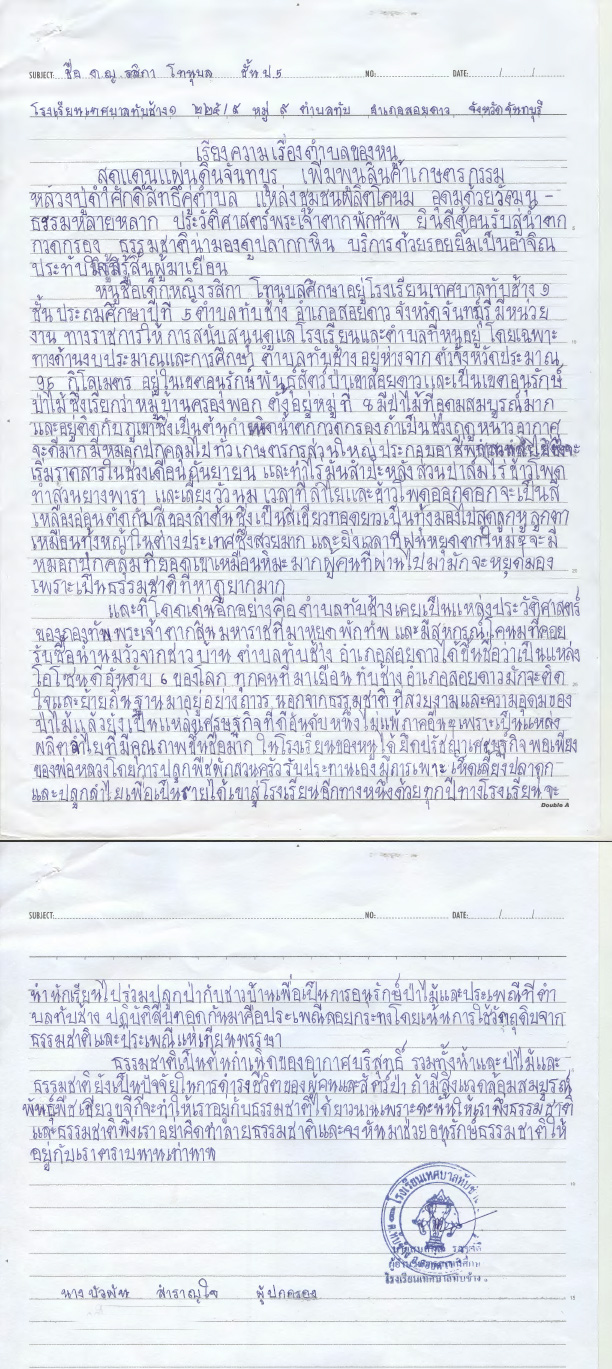 SUBJECT: ชื่อ ด.ญ. รสิกา โทนุบล ชั้น ป.5 NO: DATE: / /
โรงเรียนเทศบาลทับช้าง๑ ๒๒๕/๕ หมู่ ๙ ตำบลทับ อำเภอสอยดาว จังหวัดจันทบุรี
เรียงความเรื่องตำบลของหนู
สุดแดนแผ่นดินจันทบูร เพิ่มพูนสินค้าเกษตรกรรม
หลวงปู่ดำศักดิ์สิทธิ์คู่ตำบล แหล่งชุมชนผลิตโคนม อุดมด้วยวัฒน -
ธรรมหลายหลาก ประวัติศาสตร์พระเจ้าตากพักทัพ ยินดีต้อนรับสู่น้ำตก
กวดกรอง ธรรมชาติน่ามองดูปลากกหิน บริการด้วยรอยยิ้มเป็นอาจิณ
ประทับใจมิรู้สิ้นผู้มาเยือน
หนูชื่อเด็กหญิงรสิกา โทนุบลศึกษาอยู่โรงเรียนเทศบาลทับช้าง ๑
ชั้นประถมศึกษาปีที่ 5 ตำบลทับช้าง อำเภอสอยดาว จังหวัดจันทบุรี มีหน่วย
งาน ทางราชการให้ การสนับสนุนดูแลโรงเรียนและตำบลที่หนูอยู่ โดยเฉพาะ
ทางด้านงบประมาณและการศึกษา ตำบลทับช้าง อยู่ห่างจาก ตัวจังหวัดประมาณ
95 กิโลเมตร อยู่ในเขตอนุรักษ์พันธุ์สัตว์ป่าเขาสอยดาวและเป็นเขตอนุรักษ์
ป่าไม้ซึ่งเรียกว่าหมู่บ้านครองพอก ตั้งอยู่หมู่ที่ 8 มีป่าไม้ที่อุดมสมบูรณ์มาก
และอยู่ติดกับภูเขาซึ่งเป็นต้นกำเนิดน้ำตกกวดกรองถ้าเป็นช่วงฤดูหนาวอากาศ
จะดีมากมีหมอกปกคลุมไปทั่วเกษตรกรส่วนใหญ่ประกอบอาชีพ
เริ่มราดสารในช่วงเดือนกันยายน และทำไร่มันสำปะหลัง สวนปาล์มไร่ข้าวโพด
ทำสวนยางพารา และเลี้ยงวัวนม เวลาที่ลำไยและข้าวโพดออกดอกจะเป็นสี
เหลืองอ่อนตัดกับสีของลำต้นซึ่งเป็นสีเขียวทอดยาวเป็นทุ่งมองไปสุดลูกหูลูกตา
เหมือนทุ่งหญ้าในต่างประเทศซึ่งสวยมาก และยิ่งเวลาที่ฝนหยุดตกใหม่ๆ จะมี
หมอกปกคลุมที่ยอดเขาเหมือนหิมะมากผู้คนที่ผ่านไปมามักจะหยุดมอง
เพราะเป็นธรรมชาติที่หาดูยากมาก
และที่โดดเด่นอีกอย่างคือตำบลทับช้างเคยเป็นแหล่งประวัติศาสตร์
ของกองทัพพระเจ้าตากสินมหาราชที่มาหยุดพักทัพ และมีสหกรณ์โคนมที่คอย
รับซื้อน้ำนมวัวจากชาวบ้าน ตำบลทับช้าง อำเภอสอยดาวได้ขึ้นชื่อว่าเป็นแหล่ง
โอโซนอันดับ 6 ของโลก ทุกคนที่มาเยือน ทับช้าง อำเภอสอยดาวมักจะติด
ใจและย้ายถิ่นฐานมาอยู่อย่างถาวร นอกจากธรรมชาติ ที่สวยงามและความอุดมของ
ป่าไม้แล้วยังเป็นแหล่งเศรษฐกิจที่ดีอันดับหนึ่งไม่แพ้ภาคอื่นๆเพราะเป็นแหล่ง
ผลิตลำไยที่มีคุณภาพขึ้นชื่อมาก ในโรงเรียนของหนูได้ยึดปรัชญาเศรษฐกิจ พอเพียง
ของพ่อหลวงโดยการปลูกพืชผักสวนครัวรับประทานเอง มีการเพาะ เห็ดเลี้ยงปลาดุก
และปลูกลำไยเพื่อเป็นรายได้เข้าสู่โรงเรียนอีกทางหนึ่งด้วยทุกปีทางโรงเรียนจะ
Double A
SUBJECT: NO: DATE: / /
นำนักเรียนไปร่วมปลูกป่ากับชาวบ้านเพื่อเป็นการอนุรักษ์ป่าไม้และประเพณีที่ตำ
บลทับช้าง ปฏิบัติสืบทอดกันมาคือประเพณีลอยกระทงโดยเน้นการใช้วัตถุดิบจาก
ธรรมชาติและประเพณีแห่เทียนพรรษา
ธรรมชาติเป็นต้นกำเนิดของอากาศบริสุทธิ์ รวมทั้งน้ำและป่าไม้และ
ธรรมชาติยังเป็นปัจจัยในการดำรงชีวิตของผู้คนและสัตว์ป่า ถ้ามีสิ่งแวดล้อมสมบูรณ์
พันธุ์พืชเขียวขจีก็จะทำให้เราอยู่กับธรรมชาติได้ยาวนานเพราะฉะนั้นให้เราพึ่งธรรมชาติ
และธรรมชาติพึ่งเราอย่าคิดทำลายธรรมชาติและจงหันมาช่วยอนุรักษ์ธรรมชาติให้
อยู่กับเราตราบนานเท่านาน
โรงเรียนเทศบาลทับช้าง
โรงเรียนเทศบาลทับช้าง ๑
นาง บัวผัน สำราญใจ ผู้ปกครอง